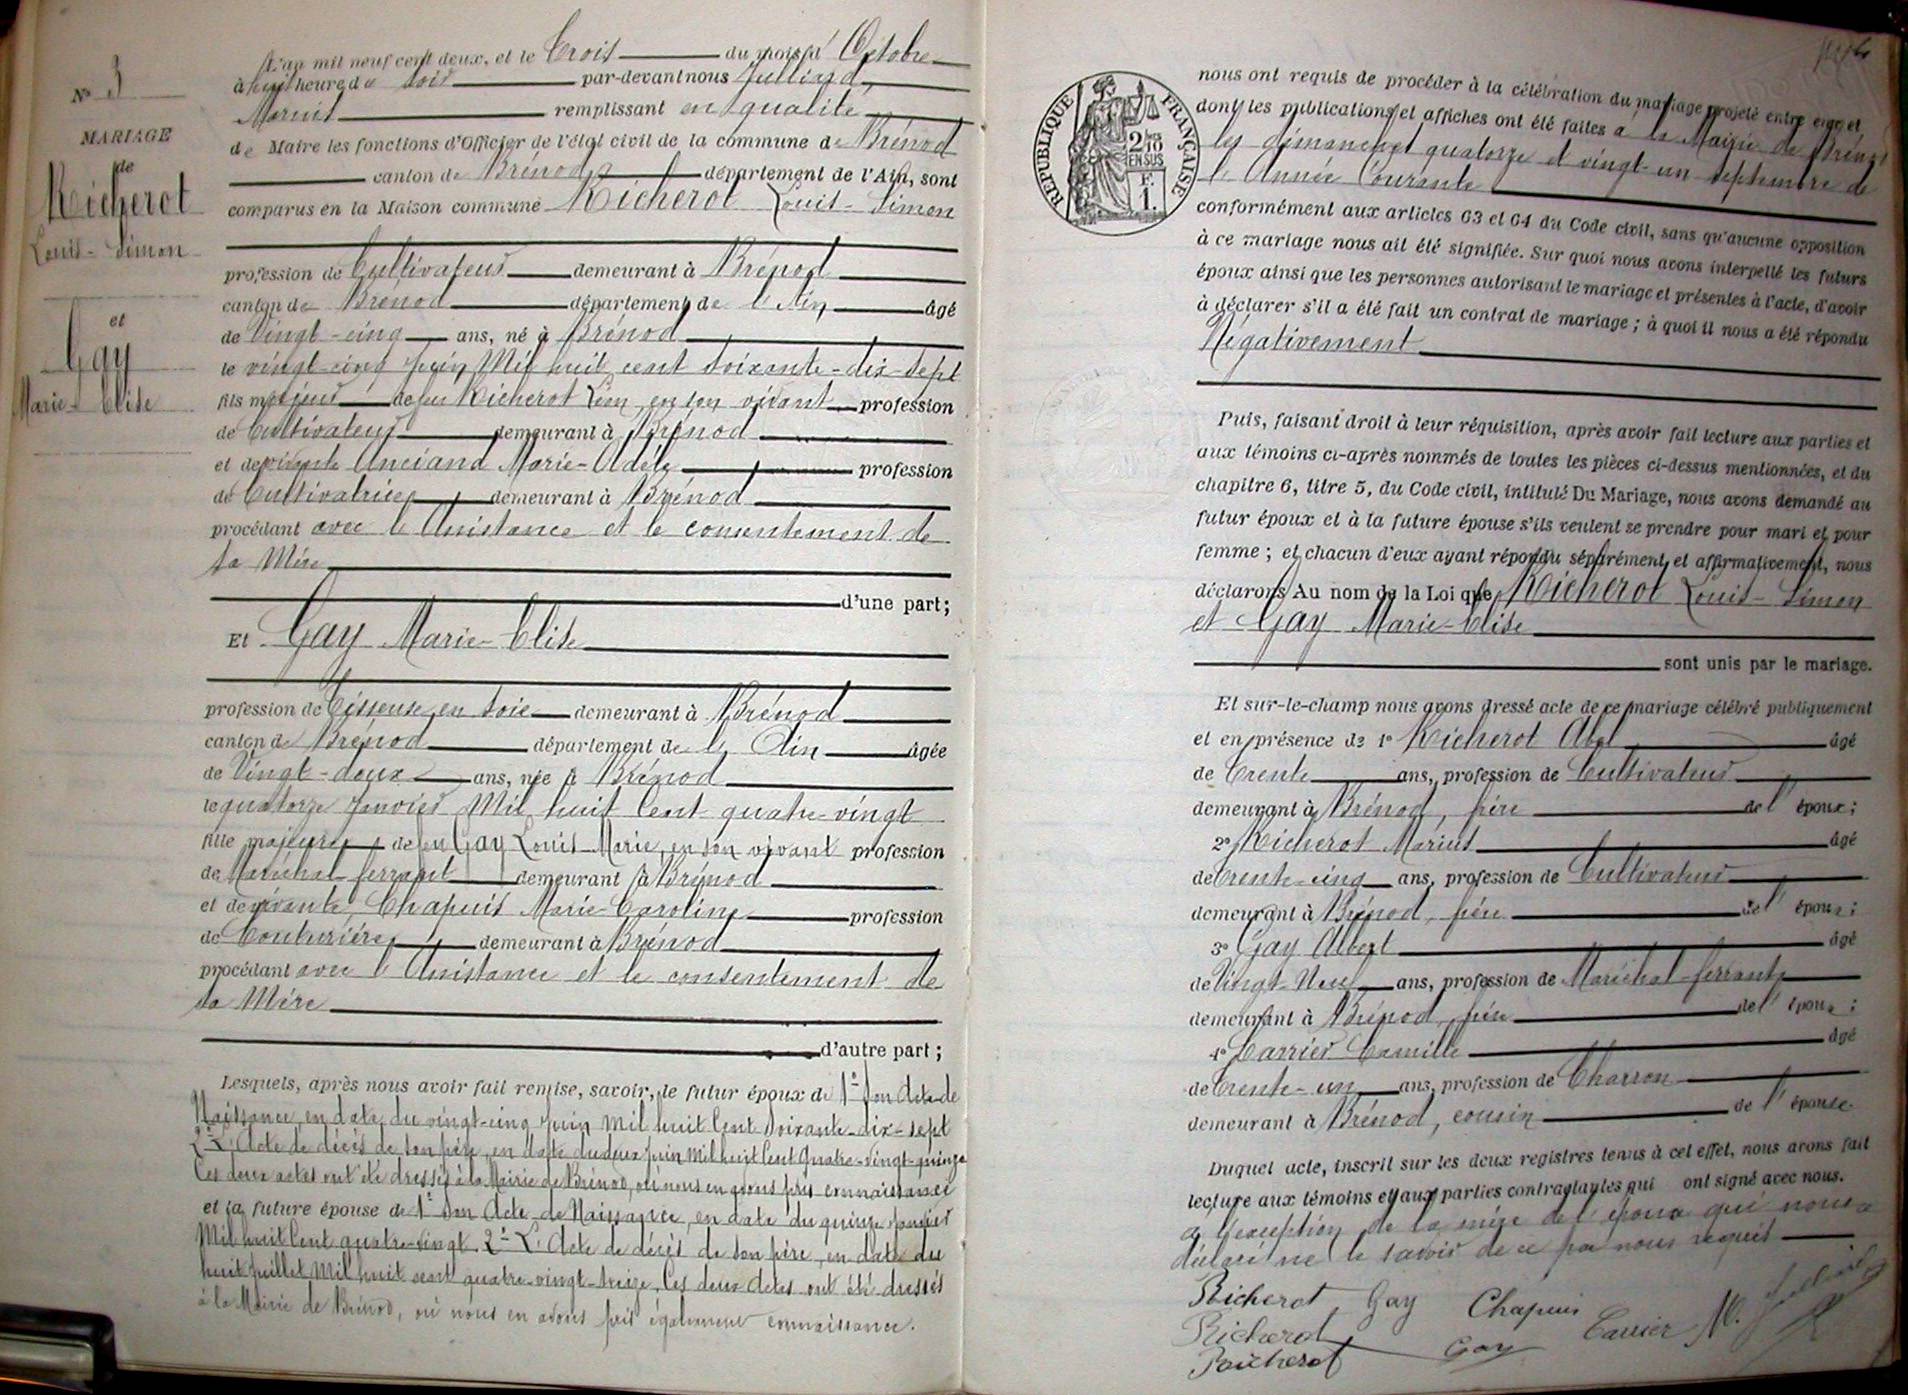 N° 3
MARIAGE
de
Richerot
Louis-Simon
et
Gay
Marie-Elise
L'an mil neuf cent deux, et le Trois du mois d'Octobre
à huit heure du soir par-devant nous Julliard,
Marius remplissant en qualité
de Maire les fonctions d'Officier de l'état civil de la commune de Brénod
canton de Brénod département de l'Ain, sont
comparus en la Maison commune Richerot Louis-Simon
profession de Cultivateur demeurant à Brénod
canton de Brénod département de l'Ain âgé
de Vingt-cinq ans, né à Brénod
le vingt-cinq Juin Mil huit cent soixante-dix-sept
fils majeur de feu Richerot Léon, en son vivant profession
de Cultivateur demeurant à Brénod
et de vivante Anciand Marie-Adèle profession
de Cultivatrice demeurant à Brénod
procédant avec l'Assistance et le consentement de
sa Mère
d'une part;
Et Gay Marie-Elise
profession de Tisseuse en soie demeurant à Brénod
canton de Brénod département de l'Ain âgée
de Vingt-deux ans, née à Brénod
le quatorze Janvier Mil huit Cent quatre-vingt
fille majeure de feu Gay Louis-Marie, en son vivant profession
de Maréchal-ferrant demeurant à Brénod
et de vivante Chapuis Marie-Caroline profession
de Couturière demeurant à Brénod
procédant avec l'Assistance et le consentement de
sa Mère
d'autre part;
Lesquels, après nous avoir fait remise, savoir, le futur époux de 1° Son Acte de
Naissance, en date du vingt-cinq Juin Mil huit Cent Soixante-dix-sept
2° L'Acte de décès de son père, en date du deux Juin Mil huit Cent Quatre-vingt-quinze
Ces deux actes ont été dressés à la Mairie de Brénod, où nous en avons pris connaissance
et la future épouse de 1° Son Acte de Naissance, en date du quinze Janvier
Mil huit Cent quatre-vingt. 2° L'Acte de décès de son père, en date du
huit Juillet Mil huit cent quatre-vingt-treize. Ces deux Actes ont été dressés
à la Mairie de Brénod, où nous en avons pris également connaissance.
REPUBLIQUE FRANÇAISE
2/10
EN SUS
F.
1.
nous ont requis de procéder à la célébration du mariage projeté entre eux et
dont les publications et affiches ont été faites à la Mairie de Brénod
les dimanches quatorze et vingt-un septembre de
l'Année Courante
conformément aux articles 63 et 64 du Code civil, sans qu'aucune opposition
à ce mariage nous ait été signifiée. Sur quoi nous avons interpellé les futurs
époux ainsi que les personnes autorisant le mariage et présentes à l'acte, d'avoir
à déclarer s'il a été fait un contrat de mariage; à quoi il nous a été répondu
Négativement
Puis, faisant droit à leur réquisition, après avoir fait lecture aux parties et
aux témoins ci-après nommés de toutes les pièces ci-dessus mentionnées, et du
chapitre 6, titre 5, du Code civil, intitulé Du Mariage, nous avons demandé au
futur époux et à la future épouse s'ils veulent se prendre pour mari et pour
femme; et chacun d'eux ayant répondu séparément et affirmativement, nous
déclarons Au nom de la Loi que Richerot Louis-Simon
et Gay Marie-Elise
sont unis par le mariage.
Et sur-le-champ nous avons dressé acte de ce mariage célébré publiquement
et en présence de 1° Richerot Abel âgé
de Trente ans, profession de Cultivateur
demeurant à Brénod, frère de l'époux;
2° Richerot Marius âgé
de Trente-cinq ans, profession de Cultivateur
demeurant à Brénod, frère de l'époux;
3° Gay Albert âgé
de Vingt-Neuf ans, profession de Maréchal-ferrant
demeurant à Brénod, frère de l'épouse;
4° Carrier Camille âgé
de Trente-un ans, profession de Charron
demeurant à Brénod, cousin de l'épouse
Duquel acte, inscrit sur les deux registres tenus à cet effet, nous avons fait
lecture aux témoins et aux parties contractantes qui ont signé avec nous.
à l'exception de la mère de l'époux qui nous a
déclaré ne le savoir de ce par nous requis
Richerot Gay Chapuis Carrier M. Julliard
Richerot Gay
Richerot